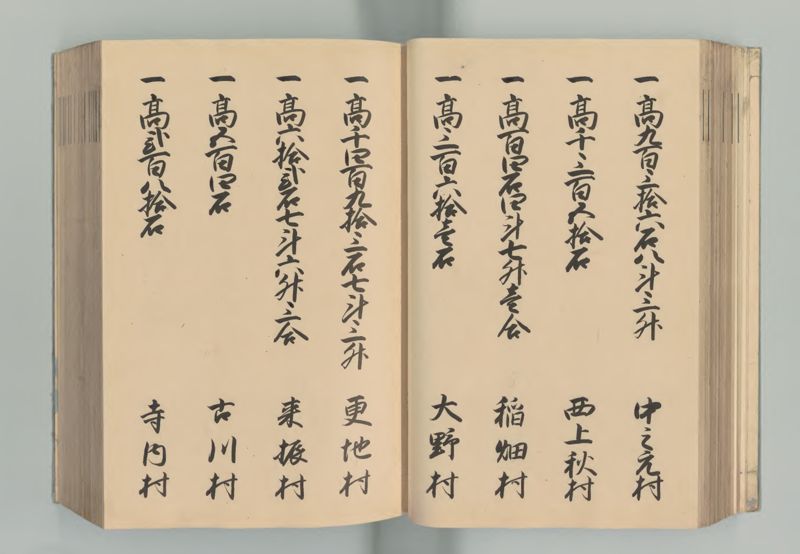 一 高九百三拾六石八斗三升 中之元村
一 高千三百五拾石 西上秋村
一 高百四石四斗七升壱合 稲畑村
一 高三百六拾壱石 大野村
一 高千四百九拾三石七斗三升 更地村
一 高六拾弐石七斗六升三合 来振村
一 高五百四石 古川村
一 高弐百八拾石 寺内村